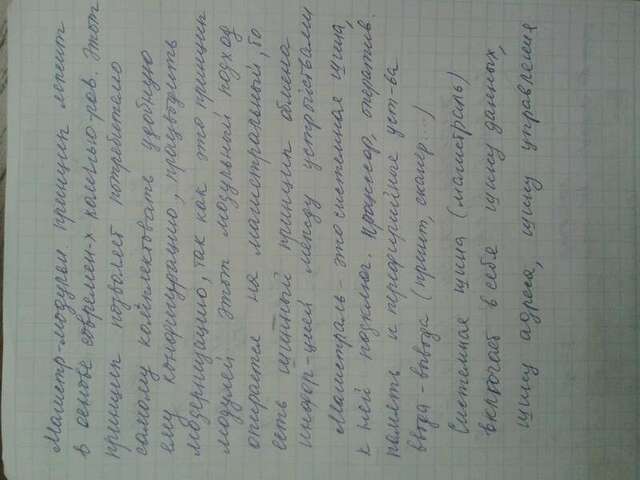 Магистр-модульн. принцип лежит
в основе современ-х компью-ров. Этот
принцип позволяет потребителю
самому комплектовать удобную
ему конфигурацию, производить
модернизацию, так как это принцип
модулей Этот модульный подход
опирается на магистральный, то
есть шинный принцип обмена
информ-цией между устройствами
Магистраль - это системная шина,
к ней подключ. Процессор, оператив.
память и периферийные уст-ва
ввода-вывода (принт, сканер...)
Системная шина (магистраль)
включает в себя шину данных,
шину адреса, шину управления